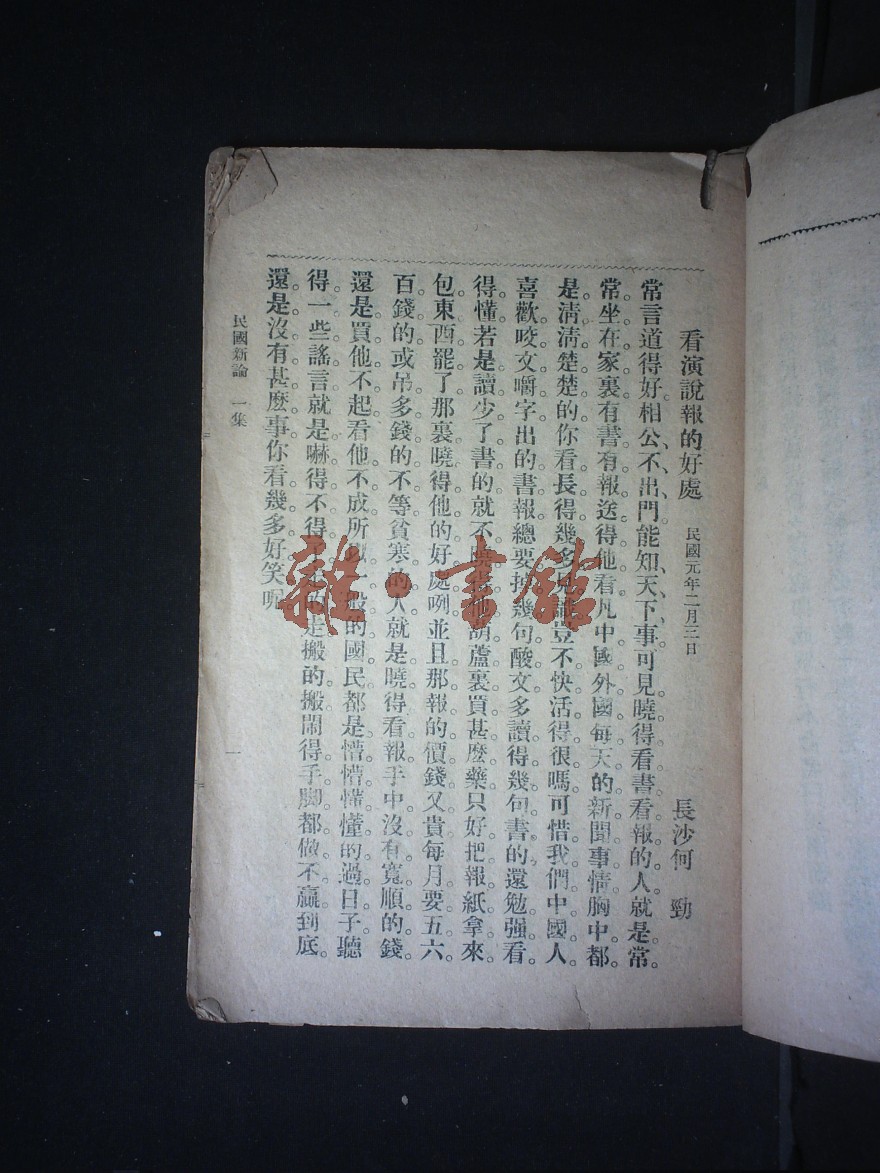 看演說報的好處 民國元年二月三日 長沙何 勁
常言道得好相公不出門能知天下事可見曉得看書看報的人就是常
常坐在家裏有書有報送得他看凡中國外國每天的新聞事情胸中都
是清清楚楚的你看長得幾多見識豈不快活得很嗎可惜我們中國人
喜歡咬文嚼字出的書報總要拽幾句酸文多讀得幾句書的還勉强看
得懂若是讀少了書的就不曉得他葫蘆裏買甚麽藥只好把報紙拿來
包東西罷了那裏曉得他的好處咧並且那報的價錢又貴每月要五六
百錢的或吊多錢的不等貧寒的人就是曉得看報手中沒有寬順的錢
還是買他不起看他不成所以一般的國民都是懵懵懂懂的過日子聽
得一些謠言就是嚇得不得了走的走搬的搬鬧得手脚都做不贏到底
還是沒有甚麽事你看幾多好笑呢
民國新論 一集 一
雜·書館